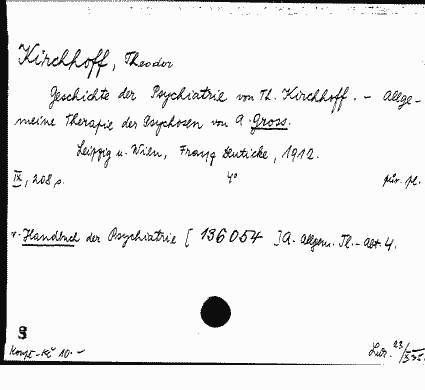 Kirchhoff, Theodor
Geschichte der Psychiatrie von Th. Kirchhoff. - Allge-
meine Therapie der Psychosen von A. Gross.
Leipzig u. Wien, Franz Deuticke, 1912.
IX, 208 s. 4° pův. pl.
v. Handbuch der Psychiatrie [ 136054 ] A. Allgem. Tl. - Abt. 4.
9
Koupě - Kč 10.-
23/